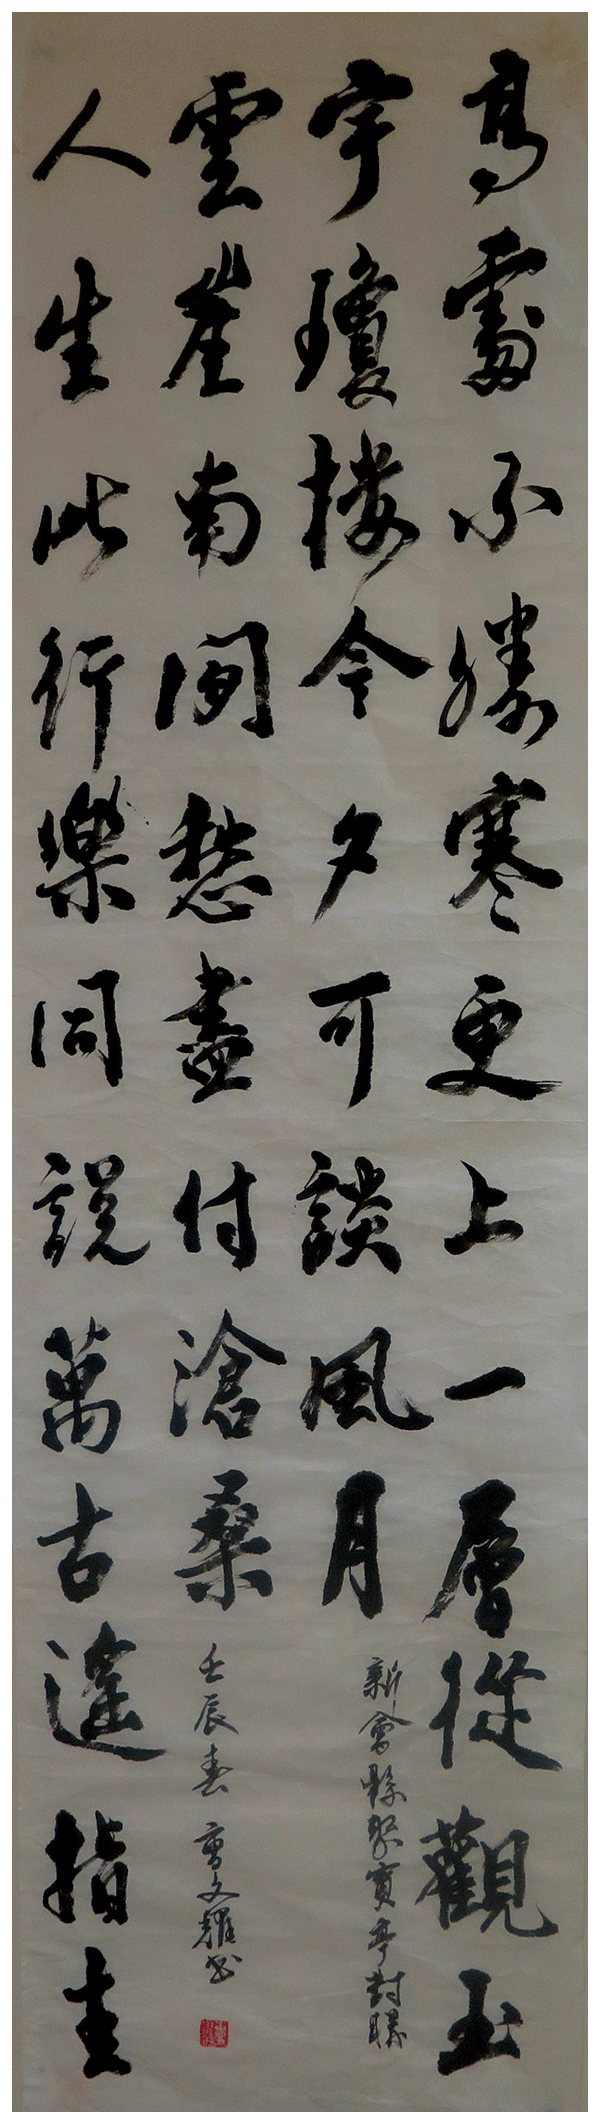 高處不勝寒更上一層從觀玉
宇瓊樓今夕可談風月
新會縣聚寶亭對聯
人生此行樂同說萬古遙指圭
雲崖南閒愁盡付滄桑
壬辰春 曾文耀書